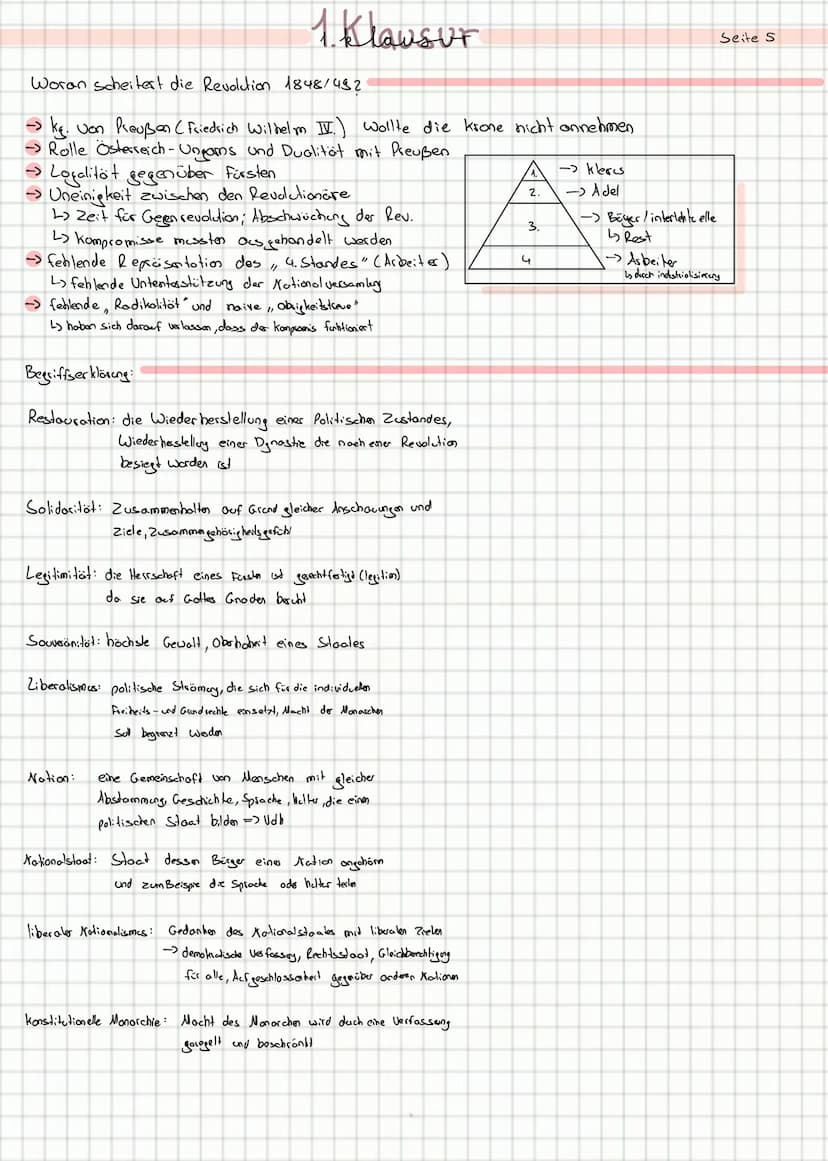 1. Klausur
Seite 5
Woran scheitert die Revolution 1848/49?
→ Kg. von Preußen (Friedrich Wilhelm IV.) wollte die Krone nicht annehmen
→ Rolle Österreich-Ungarns und Dualität mit Preußen
→ Loyalität gegenüber Fürsten
→ Uneinigkeit zwischen den Revolutionäre
↳ Zeit für Gegenrevolution; Abschwächung der Rev.
↳ Kompromisse mussten ausgehandelt werden
→ fehlende Repräsentation des „4. Standes" (Arbeiter)
↳ fehlende Unterstützung der Nationalversammlung
→ fehlende „Radikalität" und naive „obrigkeitstreue"
↳ haben sich darauf verlassen, dass der Kompromis funktioniert
1. → Klerus
2. → Adel
3. → Bürger/intellektuelle
↳ Rest
4 → Arbeiter
↳ durch industrialisierung
Begriffserklärung:
Restauration: die Wiederherstellung eines Politischen Zustandes,
Wiederherstellung einer Dynastie die nach einer Revolution
besiegt worden ist
Solidarität: Zusammenhalten auf Grund gleicher Anschauungen und
Ziele, Zusammengehörigkeitsgefühl
Legitimität: die Herrschaft eines Fürsten ist gerechtfertigt (legitim)
da sie auf Gottes Gnaden beruht
Souveränität: höchste Gewalt, Oberhoheit eines Staates
Liberalismus: politische Strömung, die sich für die individuellen
Freiheits- und Grundrechte einsetzt, Macht der Monarchen
soll begrenzt werden
Nation: eine Gemeinschaft von Menschen mit gleicher
Abstammung, Geschichte, Sprache, Kultur, die einen
politischen Staat bilden => Volk
Nationalstaat: Staat dessen Bürger einer Nation angehören
und zum Beispiel die Sprache oder Kultur teilen
liberaler Nationalismus: Gedanken des Nationalstaates mit liberalen Zielen
→ demokratische Verfassung, Rechtsstaat, Gleichberechtigung
für alle, Aufgeschlossenheit gegenüber anderen Nationen
Konstitutionelle Monarchie: Macht des Monarchen wird durch eine Verfassung
geregelt und beschränkt